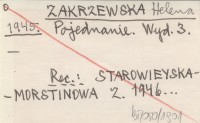 ZAKRZEWSKA Helena
1945. Pojednanie. Wyd. 3.
—
Rec.: STAROWIEYSKA-
-MORSTINOWA Z. 1946...